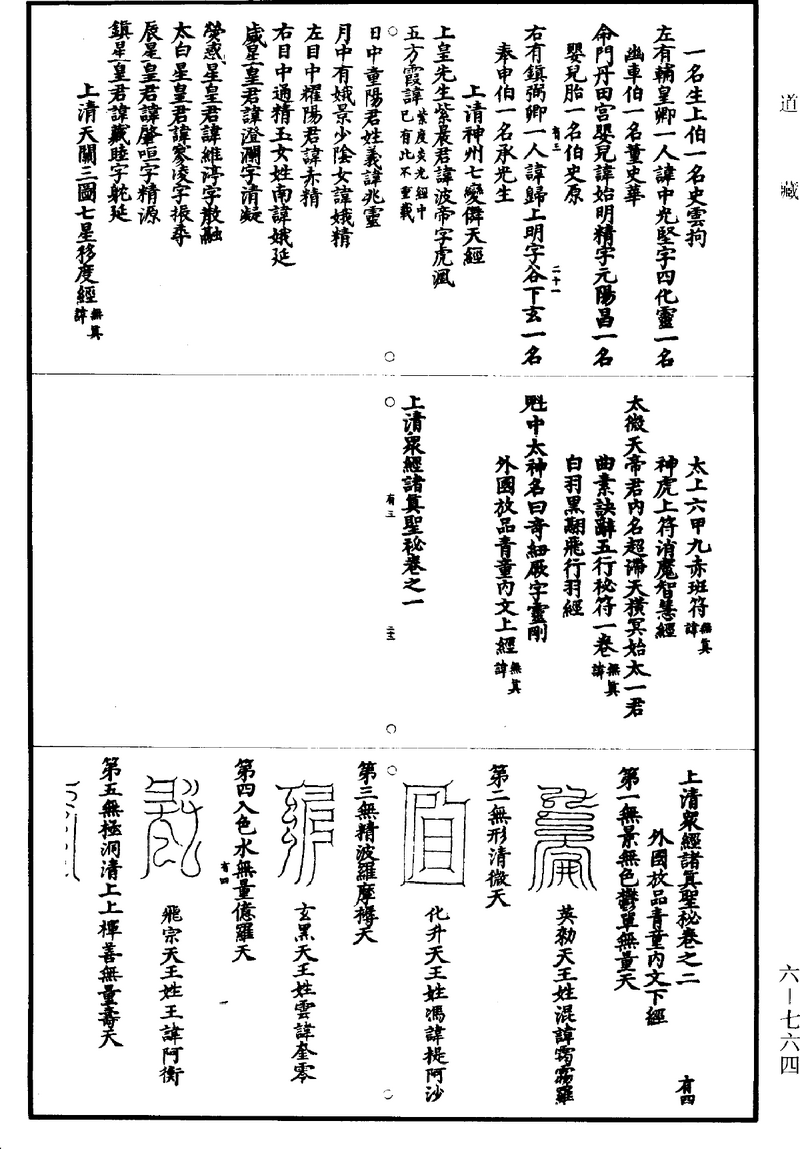 道藏
一名生上伯一名史雲拘
左有輔皇卿一人諱中光堅字四化靈一名
幽車伯一名董史華
命門丹田宮嬰兒諱始明精字元陽昌一名
嬰兒胎一名伯史原
有三
二十一
右有鎮弼卿一人諱歸上明字谷下玄一名
奉申伯一名承光生
上清神州七變儛天經
上皇先生紫晨君諱波帝字虎渢
五方霞諱紫度炎光經中已有此不重載
日中童陽君姓羲諱兆靈
月中有娥景少陰女諱娥精
左目中耀陽君諱赤精
右目中通精玉女姓南諱娥延
歲星皇君諱澄瀾字清凝
熒惑星皇君諱維渟字散融
太白星皇君諱寥凌字振尋
辰星皇君諱肇恒字精源
鎮星皇君諱藏睦字躭延
上清天關三圖七星移度經無真諱
太上六甲九赤班符無真諱
神虎上符消魔智慧經
太微天帝君內名超滯天橫冥始太一君
曲素訣辭五行秘符一卷無真諱
白羽黑翮飛行羽經
魁中太神名曰奇紐厥字靈剛
外國放品青童內文上經無真諱
上清眾經諸真聖秘卷之一
有三
上清眾經諸真聖秘卷之二
有四
外國放品青童內文下經
第一無景無色鬱單無量天
英勑天王姓混諱霭霧羅
第二無形清微天
化升天王姓馮諱提阿沙
第三無精波羅摩褥天
玄黑天王姓雲諱奎零
第四入色水無量億羅天
有四
一
飛宗天王姓王諱阿衡
第五無極洞清上上禪善無量壽天
六－七六四